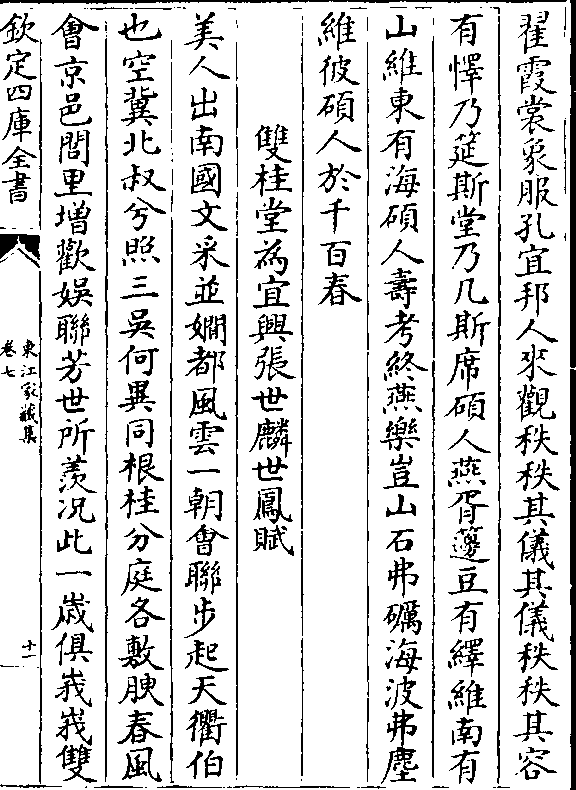 翟霞裳象服孔宜邦人來觀秩秩其儀其儀秩秩其容
有懌乃筵斯堂乃几斯席碩人燕胥籩豆有繹維南有
山維東有海碩人壽考終燕樂豈山石弗礪海波弗塵
維彼碩人於千百春
雙桂堂為宜興張世麟世鳳賦
美人出南國文采並嫺都風雲一朝會聯步起天衢伯
也空冀北叔兮照三吳何異同根桂分庭各敷腴春風
會京邑閭里增歡娛聯芳世所羨况此一歲俱峩峩雙
欽定四庫全書
東江家藏集
卷七
十一